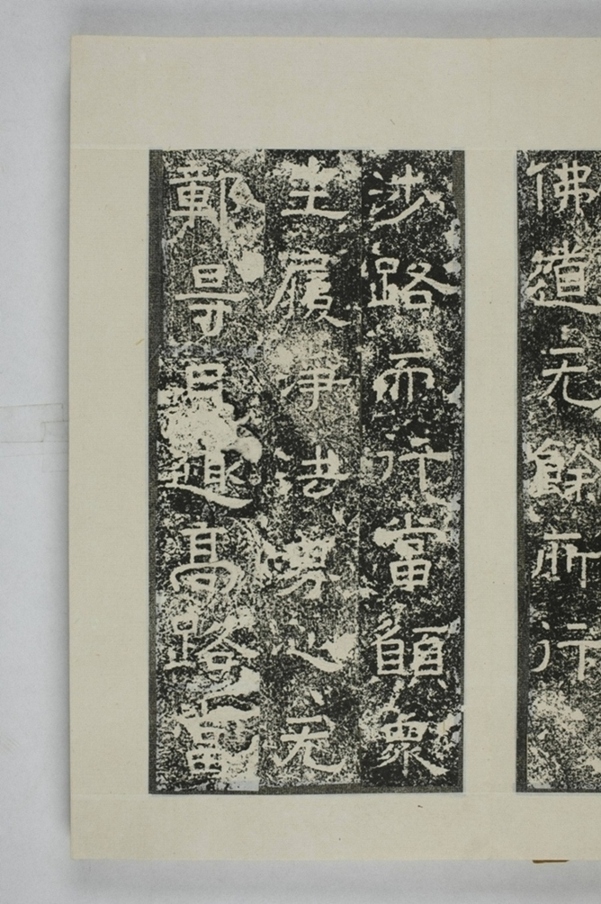 佛道无餘所行
涉路而行當願衆
生履淨法界心无
鄣㝵見趣高路當